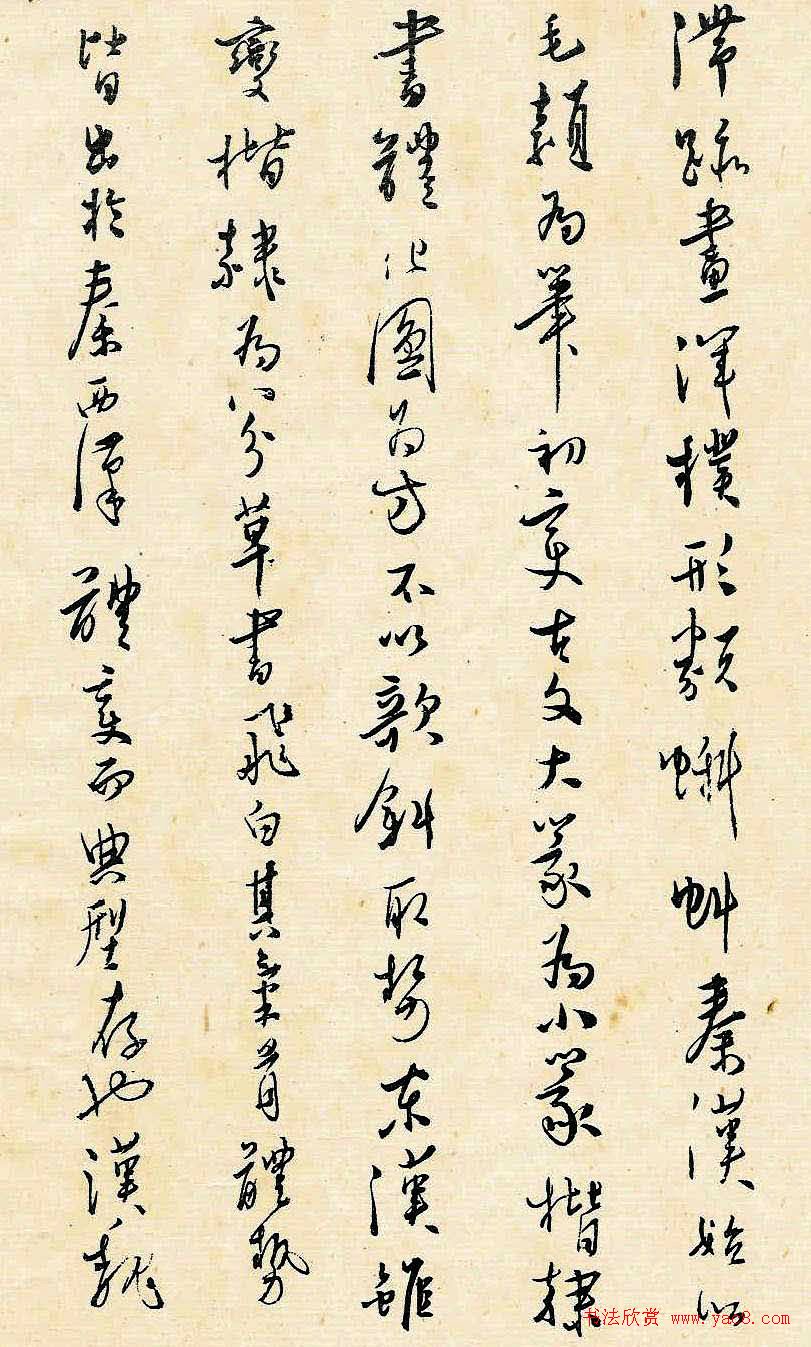 滯畫渾樸形類蝌蚪秦漢始以
毛穎為筆初變古文大篆為小篆楷隸
書體化圓為方不以欹斜取勢東漢雖
變楷隸為八分草書飛白其氣骨體勢
皆出於秦西漢體變而典型存也漢魏
书法欣赏